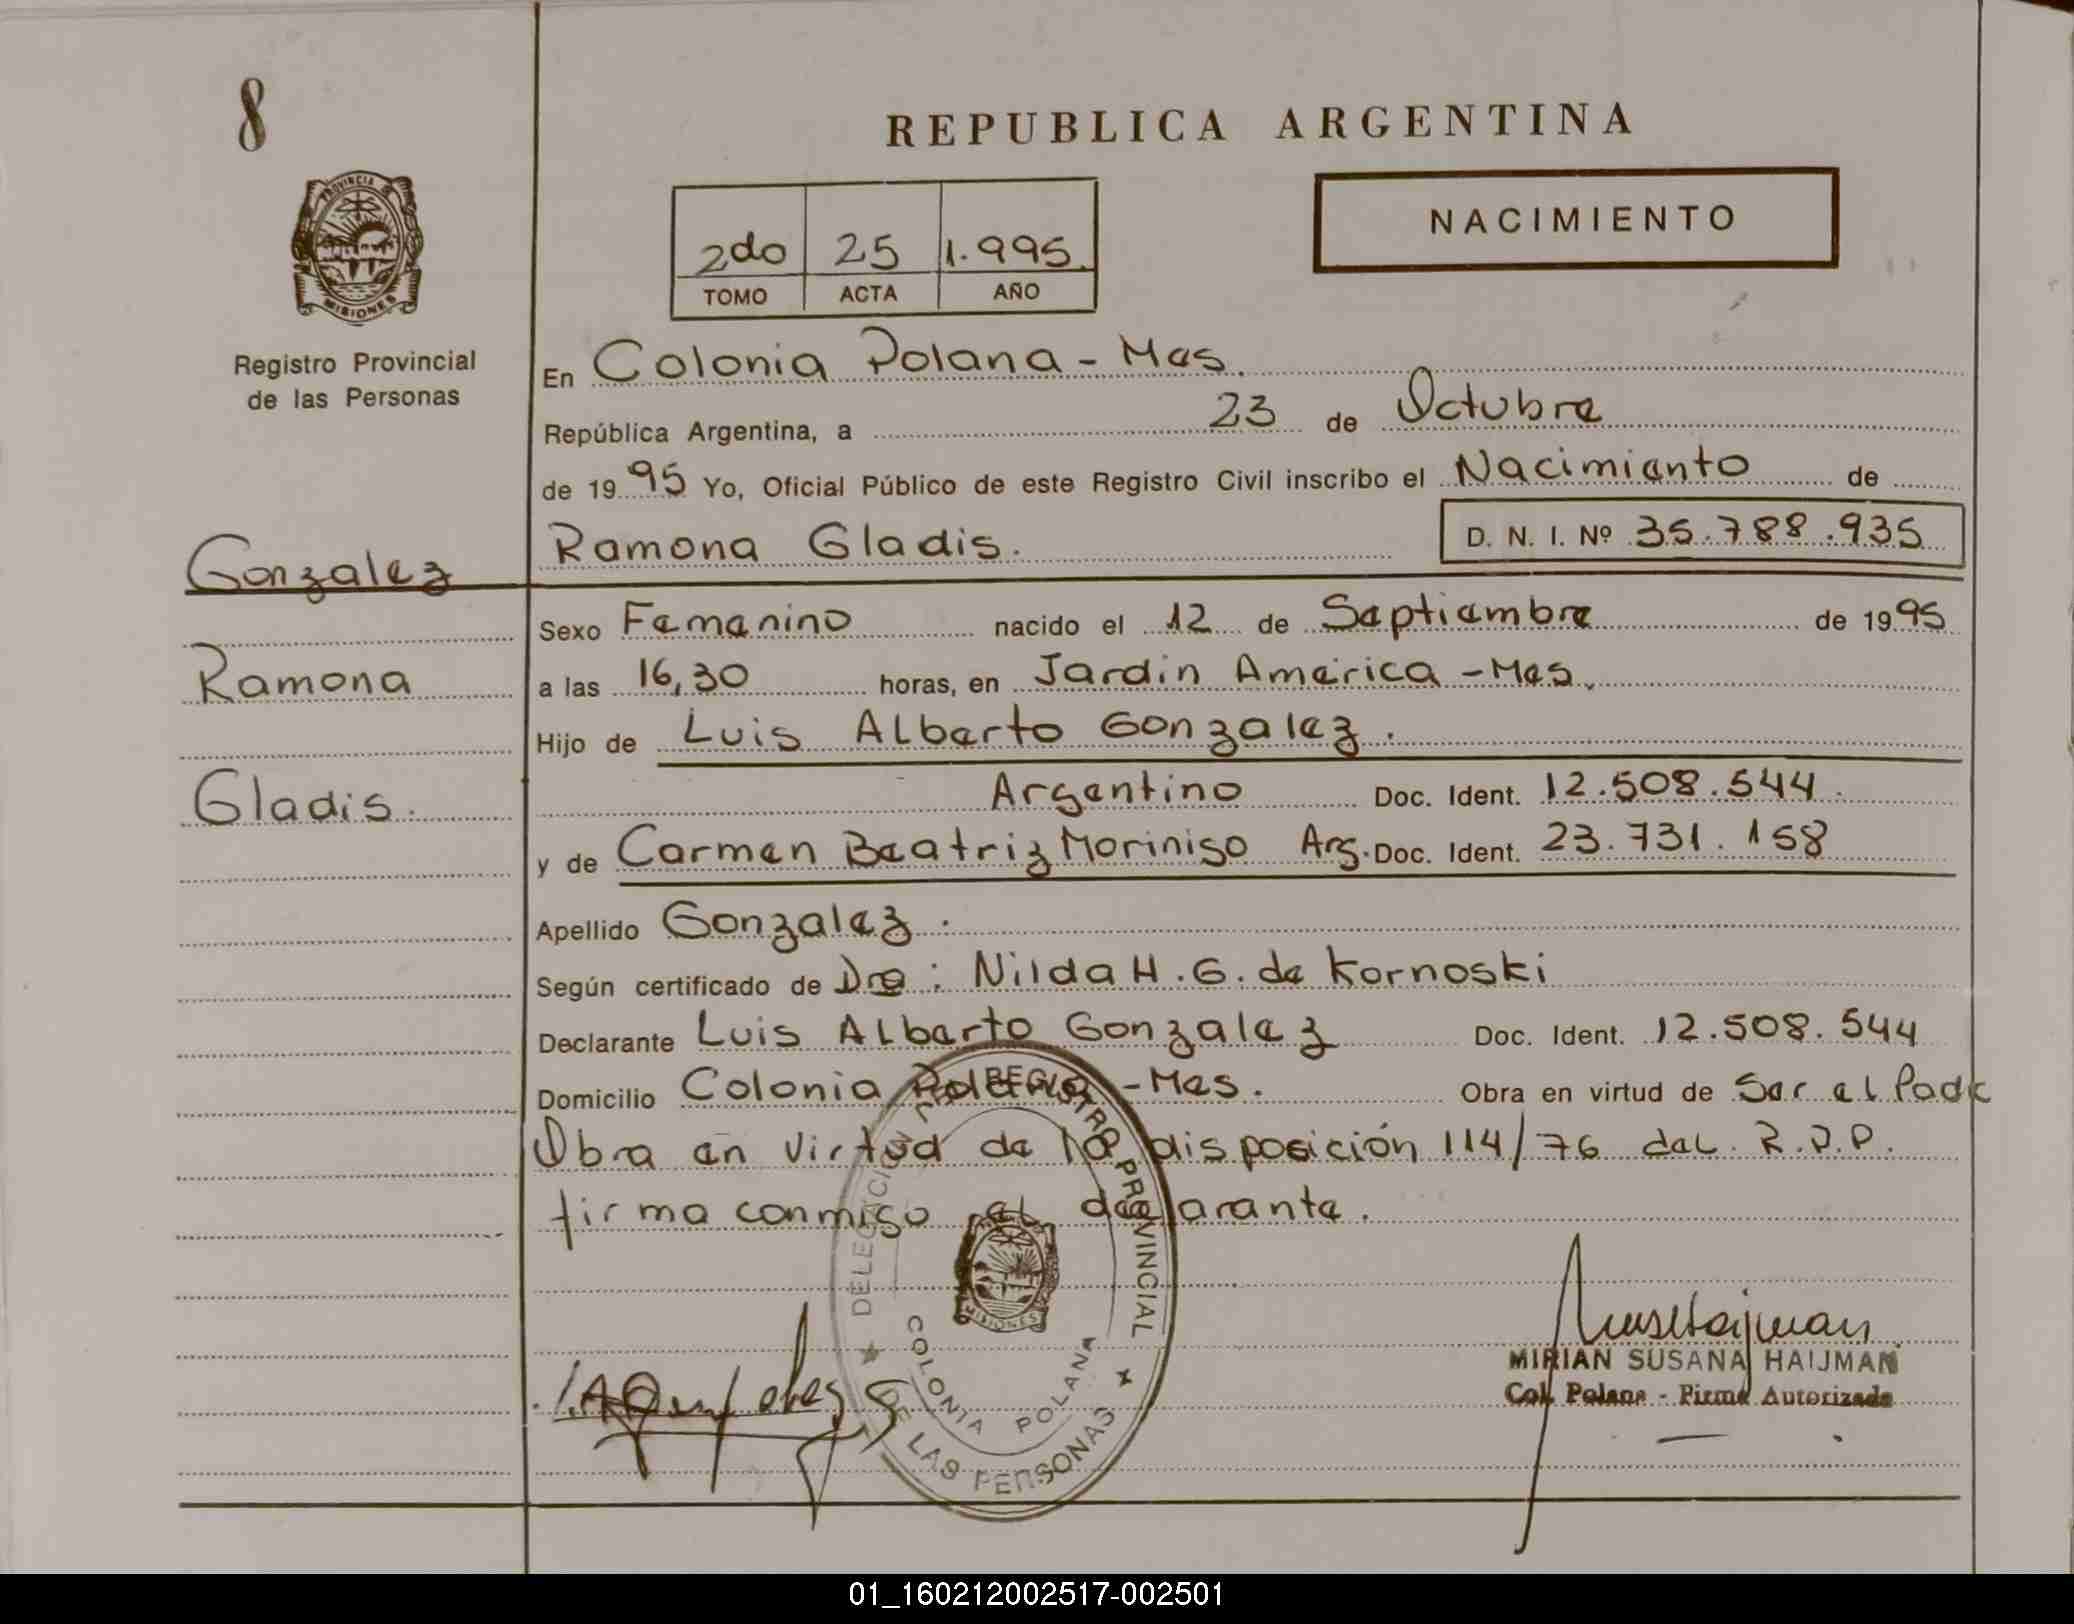 8
REPUBLICA ARGENTINA
PROVINCIA DE
MISIONES
Registro Provincial
de las Personas
2do 25 1.995
TOMO ACTA AÑO
NACIMIENTO
En Colonia Polana - Mes.
República Argentina, a 23 de Octubre
de 1995 Yo, Oficial Público de este Registro Civil inscribo el Nacimiento de
Ramona Gladis. D. N. I. Nº 35.788.935
Gonzalez
Ramona
Gladis.
Sexo Femenino nacido el 12 de Septiembre de 1995
a las 16,30 horas, en Jardin America - Mes.
Hijo de Luis Alberto Gonzalez.
Argentino Doc. Ident. 12.508.544
y de Carmen Beatriz Morinigo Arg. Doc. Ident. 23.731.158
Apellido Gonzalez.
Según certificado de Dra: Nilda H. G. de Kornoski
Declarante Luis Alberto Gonzalez Doc. Ident. 12.508.544
Domicilio Colonia Polana - Mes. Obra en virtud de Ser el Padre
Obra en virtud de la disposición 114/76 del R.P.P.
firma conmigo el declarante.
DELEGACION REGISTRO PROVINCIAL
DE LAS PERSONAS
COLONIA POLANA
MISIONES
MIRIAN SUSANA HAIJMAN
Col. Polana - Firma Autorizada
01_160212002517-002501